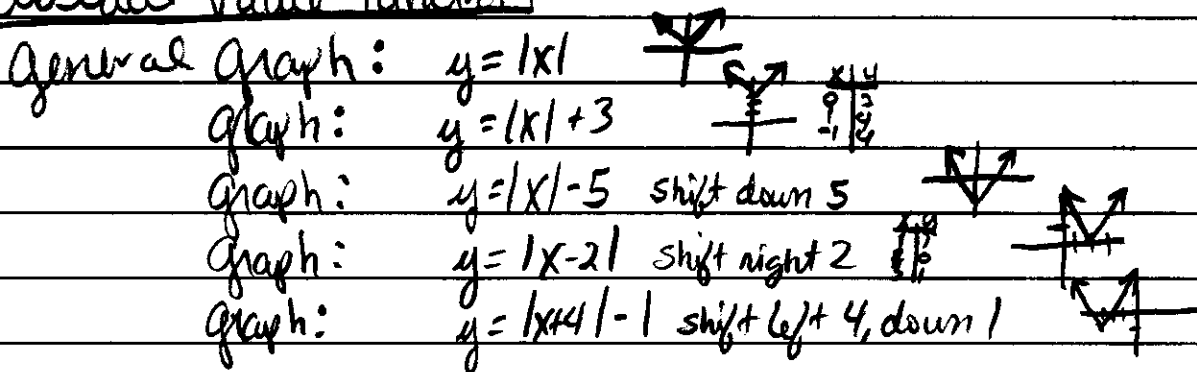 General Graph: y = |x|
graph: y = |x| + 3 x y 0 3 1 4 -1 4
Graph: y = |x| - 5 shift down 5
Graph: y = |x-2| shift right 2
Graph: y = |x+4| - 1 shift left 4, down 1